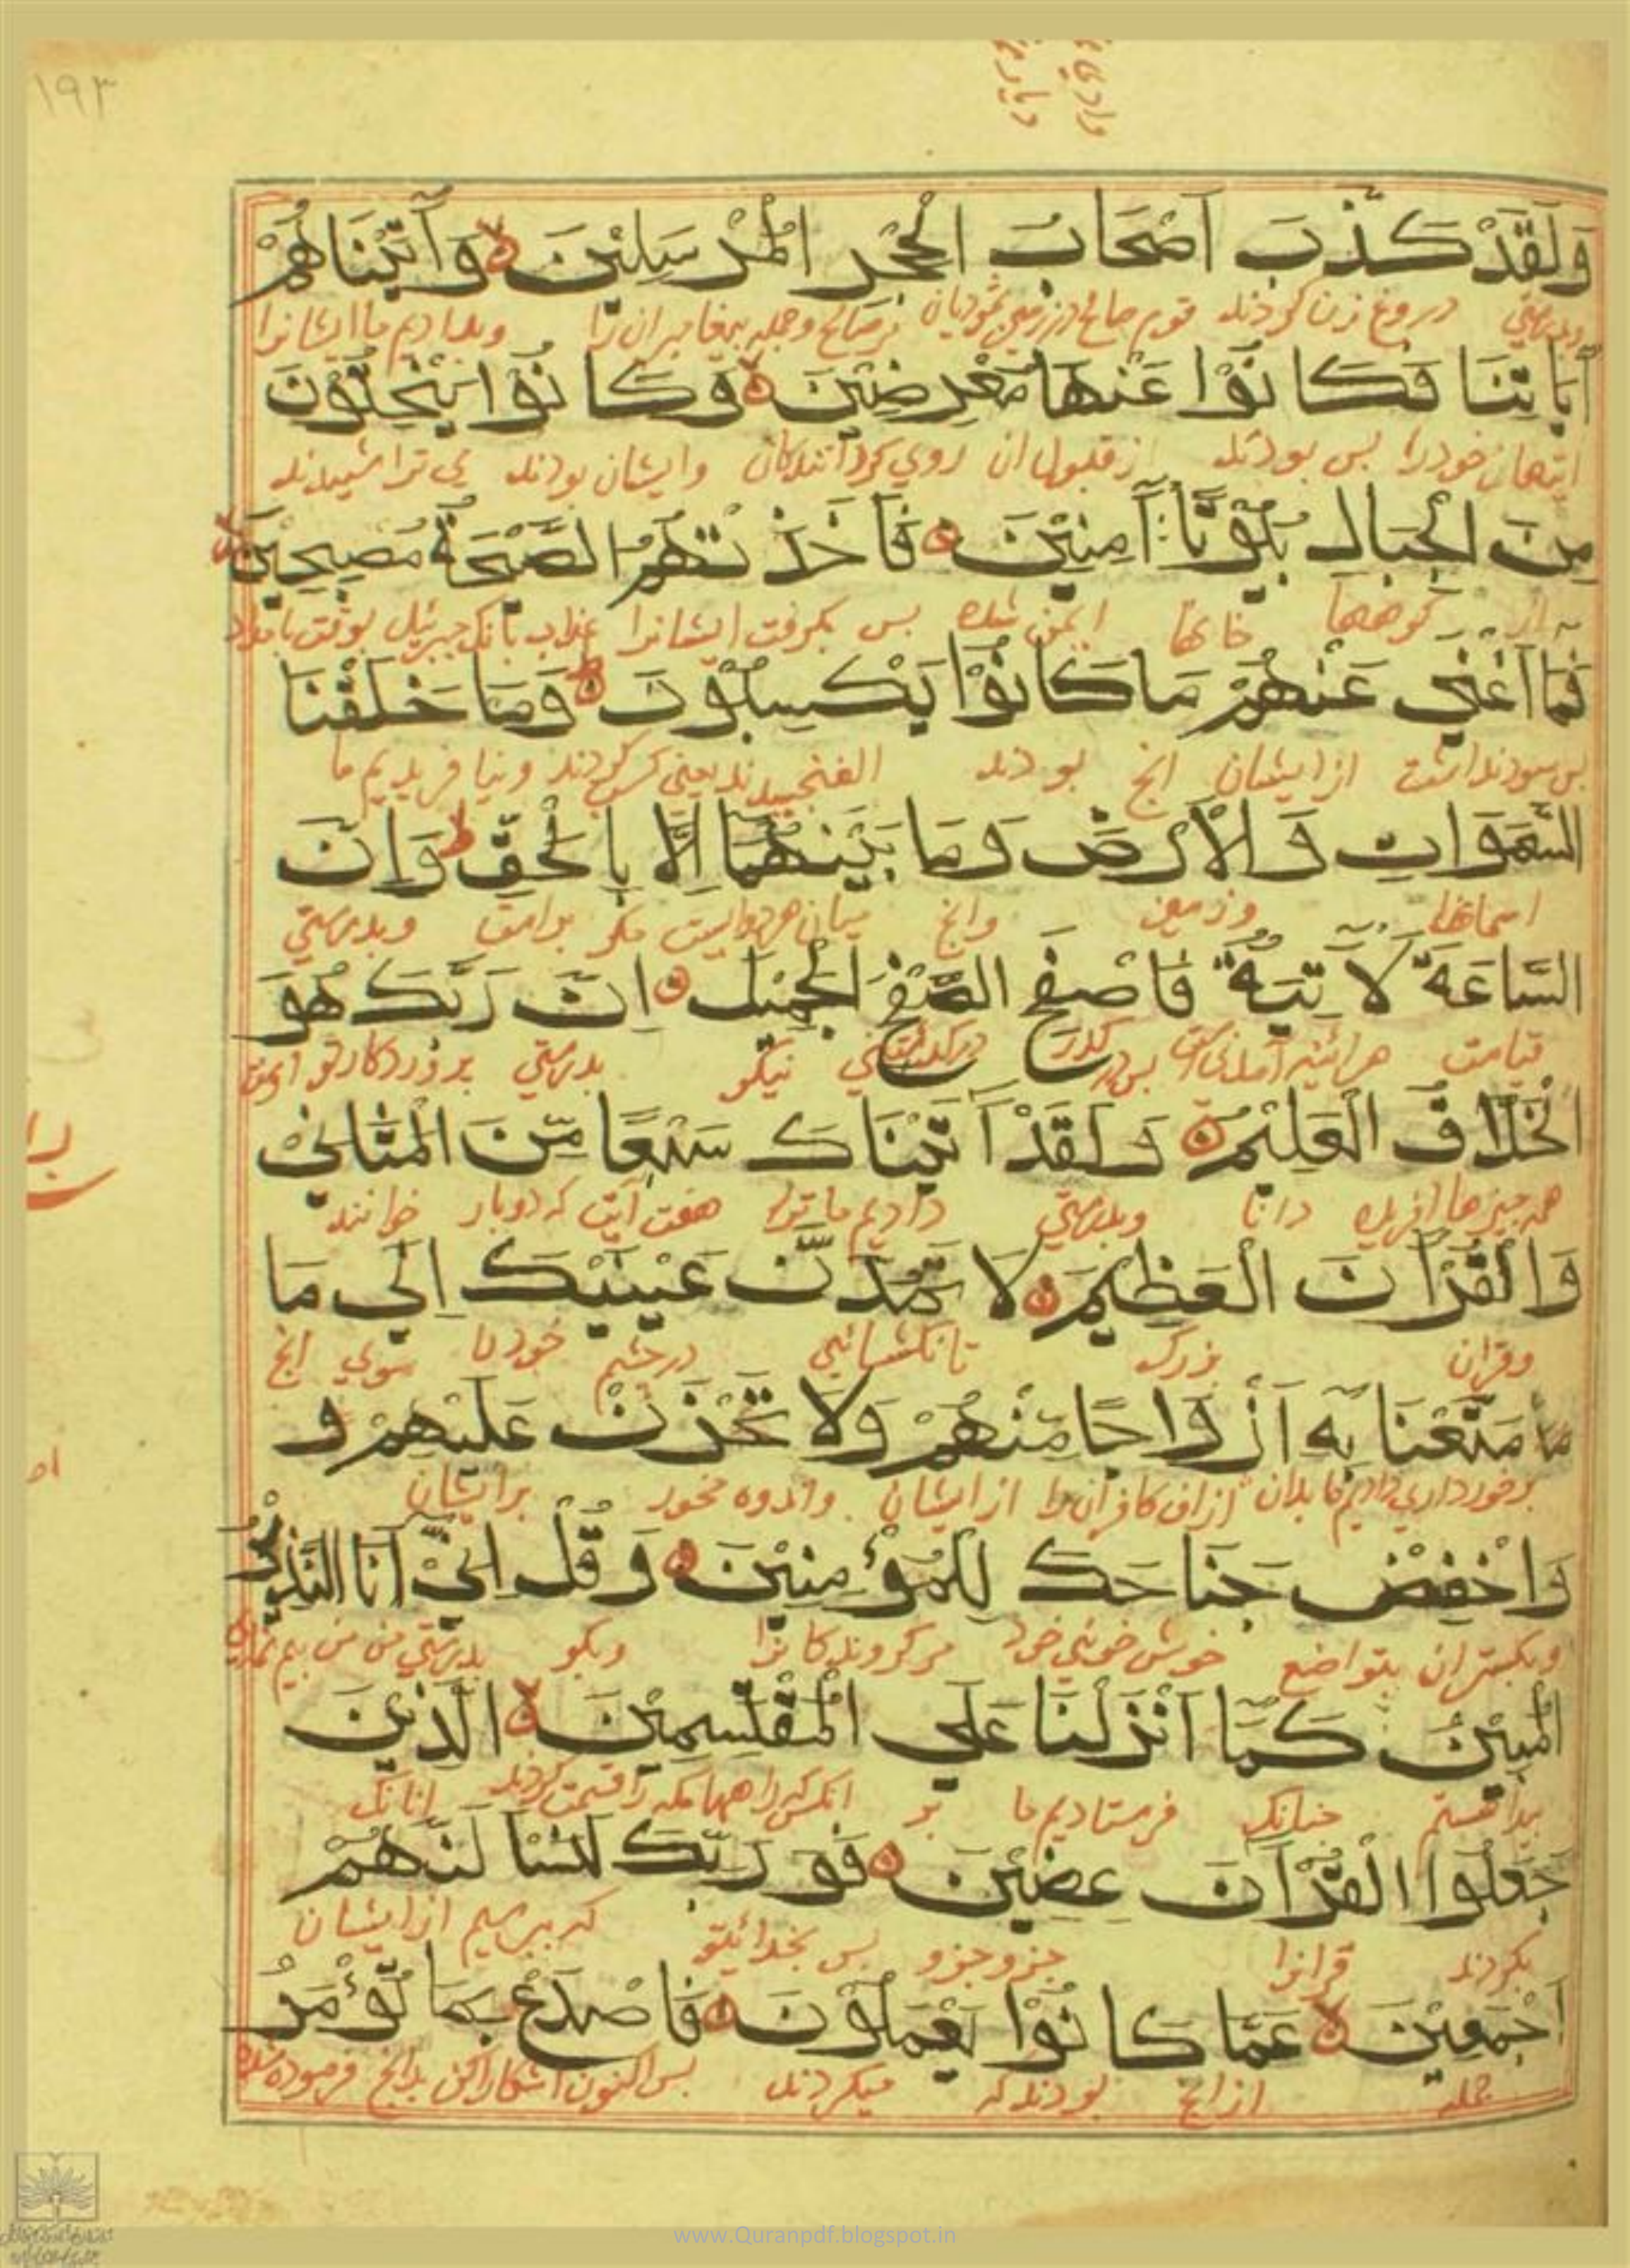 ۱۹۳
وادی
دیار
وَلَقَدْ كَذَّبَ اَصْحَابُ الْحِجْرِ الْمُرْسَلِيْنَ وَآتَيْنَاهُمْ
وبدرستی دروغ زن کردند قوم صالح در زمین ثمودیان مر صالح وجمله پیغامبران را وبدادیم ما ایشانرا
آيَاتِنَا فَكَانُوْا عَنْهَا مُعْرِضِيْنَ وَكَانُوْا يَنْحِتُوْنَ
ایتهای خودرا بس بودند از قبول ان روی کردانندکان وایشان بودند می تراشیدند
مِنَ الْجِبَالِ بُيُوْتًا آمِنِيْنَ فَاَخَذَتْهُمُ الصَّيْحَةُ مُصْبِحِيْنَ
از کوهها خانها ایمن شده بس بکرفت ایشانرا عذاب بانک جبرئیل بوقت بامداد
فَمَا اَغْنٰي عَنْهُمْ مَا كَانُوْا يَكْسِبُوْنَ وَمَا خَلَقْنَا
بس سود نداشت از ایشان انچ بودند الفنجیدند یعنی کسب کردند ونیافریدیم ما
السَّمٰوَاتِ وَالْاَرْضَ وَمَا بَيْنَهُمَا اِلَّا بِالْحَقِّ وَاِنَّ
اسمانها وزمین وانچ میان هردوایست مکر براستی وبدرستی
السَّاعَةَ لَآتِيَةٌ فَاصْفَحِ الصَّفْحَ الْجَمِيْلَ اِنَّ رَبَّكَ هُوَ
قیامت هرائینه آمدنی است بس در کذر نیکو بدرستی پروردکار تو
الْخَلَّاقُ الْعَلِيْمُ وَلَقَدْ آتَيْنَاكَ سَبْعًا مِّنَ الْمَثَانِيْ
همه چیزها افریده دانا وبدرستی دادیم ما ترا هفت آیت که دوبار خوانند
وَالْقُرْآنَ الْعَظِيْمَ لَا تَمُدَّنَّ عَيْنَيْكَ اِلٰي مَا
وقران بزرک تا نکشائی در چشم خودرا سوی انچ
مَا مَتَّعْنَا بِهٖ اَزْوَاجًا مِنْهُمْ وَلَا تَحْزَنْ عَلَيْهِمْ وَ
برخورداری دادیم ما بدان از کافران را از ایشان واندوه مخور برایشان
وَاخْفِضْ جَنَاحَكَ لِلْمُؤْمِنِيْنَ وَقُلْ اِنِّيْ اَنَا النَّذِيْرُ
وبکستران بتواضع خوش خوئی خود مر کروندکانرا وبکو بدرستی من من بیم
الْمُبِيْنُ كَمَا اَنْزَلْنَا عَلَي الْمُقْتَسِمِيْنَ الَّذِيْنَ
پیدا هستم چنانک فرستادیم ما بر راهها مکه را قسمت کردند انانک
جَعَلُوا الْقُرْآنَ عِضِيْنَ فَوَرَبِّكَ لَنَسْاَلَنَّهُمْ
بکردند قرانرا جزو جزو بس بخدای تو که بپرسیم از ایشان
اَجْمَعِيْنَ عَمَّا كَانُوْا يَعْمَلُوْنَ فَاصْدَعْ بِمَا تُؤْمَرُ
جمله از انچ بودند که میکردند بس اکنون اشکارا کن بدانچ فرموده شده
www.Quranpdf.blogspot.in